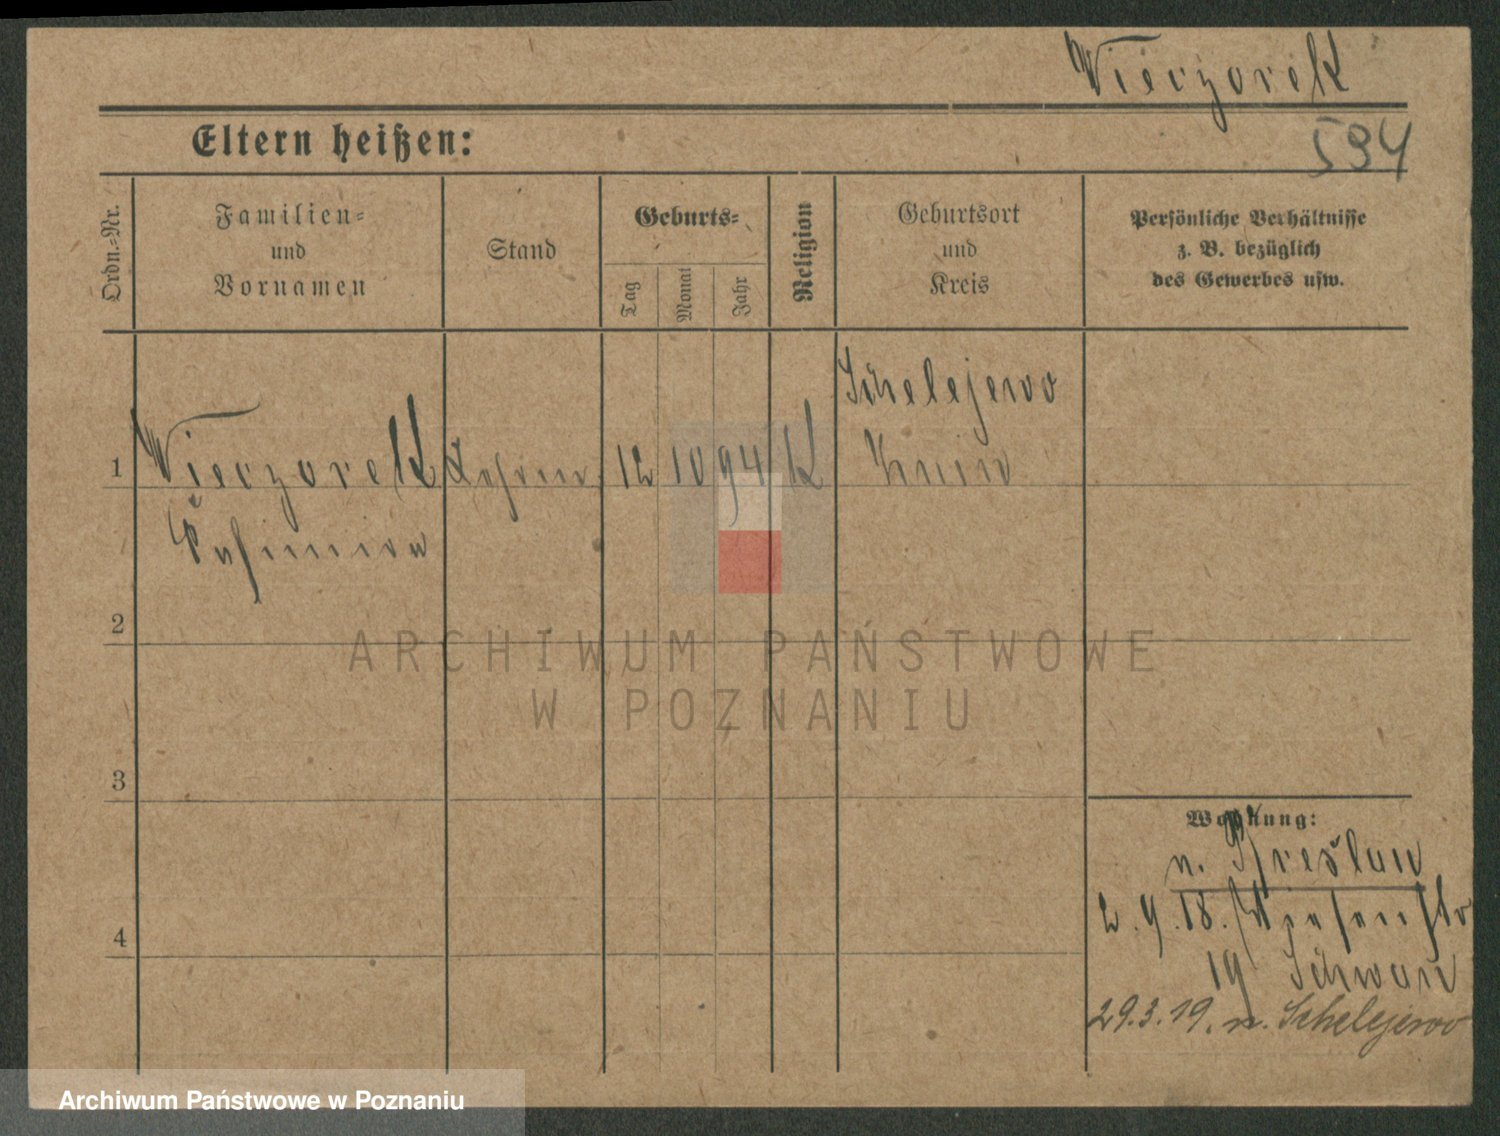 Wieczorek
594
Eltern heißen:
Ordn.-Nr.
Familien-
und
Vornamen
Stand
Geburts-
Tag
Monat
Jahr
Religion
Geburtsort
und
Kreis
Persönliche Verhältnisse
z. B. bezüglich
des Gewerbes usw.
Schelejewo
1 Wieczorek 12 10 94 K Znin
2
ARCHIWUM PAŃSTWOWE
W POZNANIU
3
Wohnung:
n. Breslau
4
2.9.18.
19 Schwan
29.3.19. n. Schelejewo
Archiwum Państwowe w Poznaniu